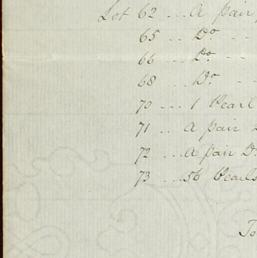 Lot 62 ... A pair
65 ... Do - -
66 ... Do - -
68 ... Do - -
70 ... 1 Pearl
71 .. A pair
72 ... A pair D
73 ... 56 Pearls
To